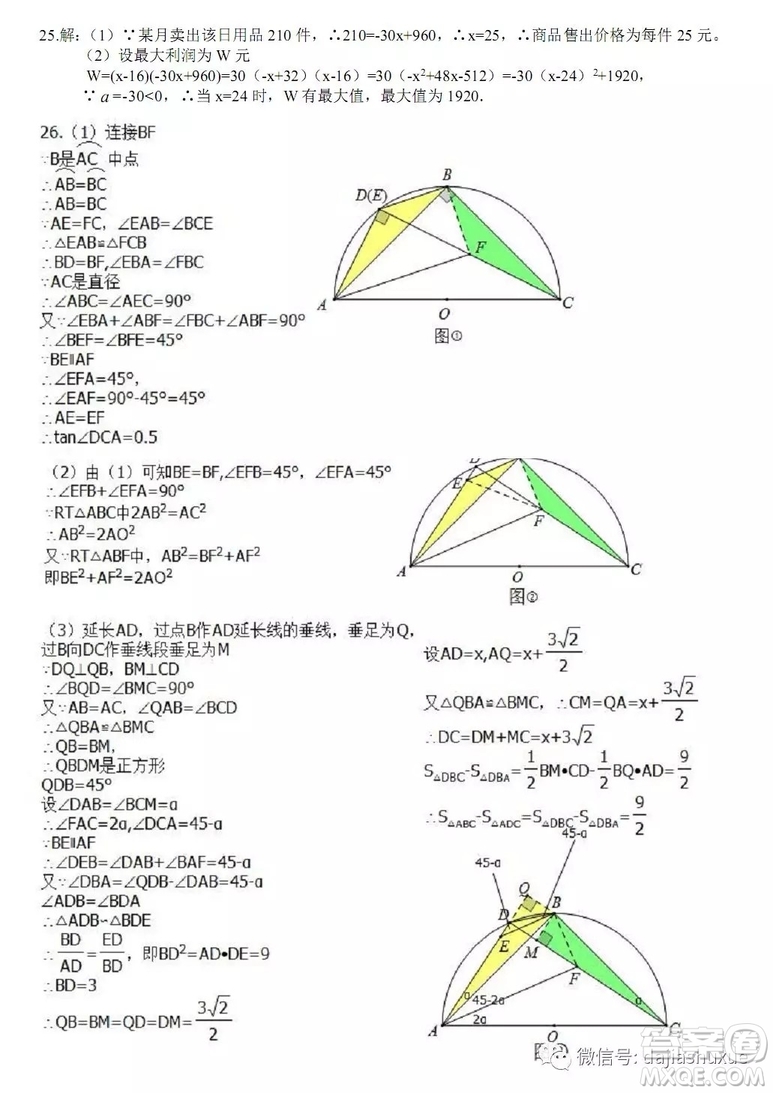 25.解:（1）∵某月卖出该日用品 210 件，∴210=-30x+960，∴x=25，∴商品售出价格为每件 25 元。
（2）设最大利润为 W 元
W=(x-16)(-30x+960)=30（-x+32)（x-16）=30（-x²+48x-512）=-30（x-24）²+1920，
∵ a=-30<0，∴当 x=24 时，W 有最大值，最大值为 1920.
26.（1）连接BF
∵B是AC 中点
∴AB=BC
∴AB=BC
∵AE=FC，∠EAB=∠BCE
∴△EAB≌△FCB
∴BD=BF,∠EBA=∠FBC
∵AC是直径
∴∠ABC=∠AEC=90°
又∵∠EBA+∠ABF=∠FBC+∠ABF=90°
∴∠BEF=∠BFE=45°
∵BE∥AF
∴∠EFA=45°,
∴∠EAF=90°-45°=45°
∴AE=EF
∴tan∠DCA=0.5
D(E)
B
F
A
O
C
图①
（2）由（1）可知BE=BF,∠EFB=45°，∠EFA=45°
∴∠EFB+∠EFA=90°
∵RT△ABC中2AB²=AC²
∴AB²=2AO²
又∵RT△ABF中，AB²=BF²+AF²
即BE²+AF²=2AO²
E
F
A
O
C
图②
（3）延长AD，过点B作AD延长线的垂线，垂足为Q,
过B向DC作垂线段垂足为M
∵DQ⊥QB，BM⊥CD
∴∠BQD=∠BMC=90°
又∵AB=AC，∠QAB=∠BCD
∴△QBA≌△BMC
∴QB=BM,
∴QBDM是正方形
QDB=45°
设∠DAB=∠BCM=a
∴∠FAC=2a,∠DCA=45-a
∵BE∥AF
∴∠DEB=∠DAB+∠BAF=45-a
又∵∠DBA=∠QDB-∠DAB=45-a
∠ADB=∠BDA
∴△ADB∽△BDE
∴BD/AD=ED/BD，即BD²=AD•DE=9
∴BD=3
∴QB=BM=QD=DM=3√2/2
设AD=x,AQ=x+3√2/2
又△QBA≌△BMC，∴CM=QA=x+3√2/2
∴DC=DM+MC=x+3√2
S△DBC-S△DBA=1/2BM•CD-1/2BQ•AD=9/2
∴S△ABC-S△ADC=S△DBC-S△DBA=9/2
45-a
45-a
Q
B
D
E
M
F
a
45-2a
2a
a
A
O
C
微信号: dajiashuxue
答案圈
MXQE.COM